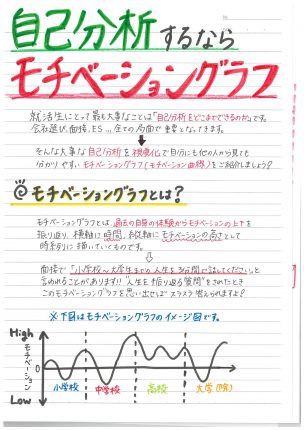 自己分析するなら
モチベーショングラフ
就活生にとって最も大事なことは「自己分析をどこまでできるのか」です。
会社選び、面接、ES… 全ての局面で重要となってきます。
そんな大事な自己分析を視覚化で自分にも他の人から見ても
分かりやすいモチベーショングラフ(モチベーション曲線)をご紹介しましょう?
@モチベーショングラフとは?
モチベーショングラフとは、過去の自身の体験からモチベーションの上下を
振り返り、横軸に時間、縦軸にモチベーションの高さとして
時系列に描いていくものです。
面接で「小学校〜大学生までの人生を3分間で話してください」と
言われることがあります!! "人生を振り返る質問"をされたとき
このモチベーショングラフを思い出せばスラスラ答えられますよ?
※下図はモチベーショングラフのイメージ図です。
High
モチベーション
0
Low
小学校
中学校
高校
大学(4年)